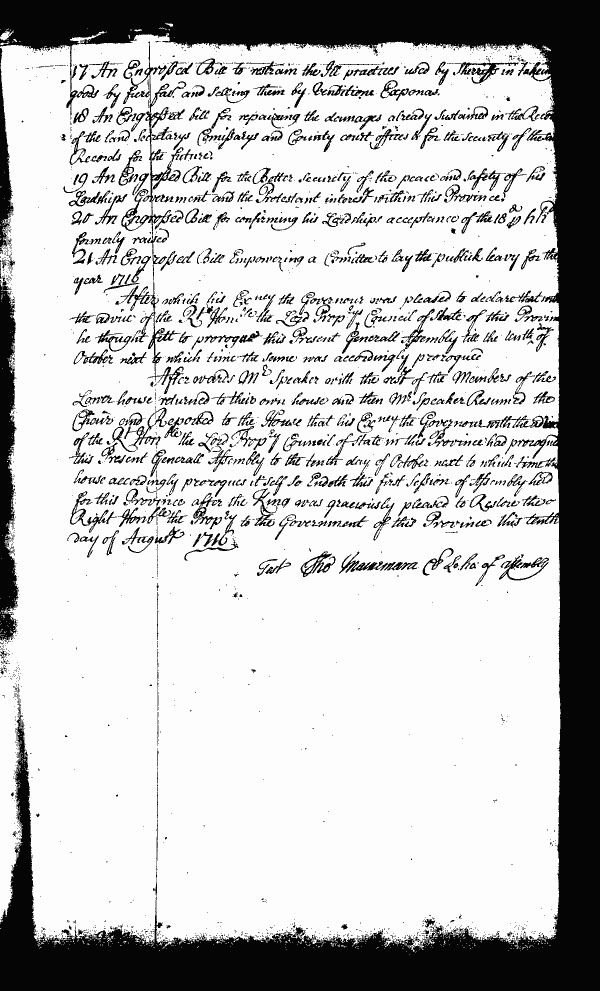 17 An Engrossed Bill to restrain the Ill practices used by Sherriffs in taking
goods by fieri fas. and selling them by Venditione Exponas.
18 An Engrossed bill for repairing the damages already Sustained in the Recor
of the land Secretarys Comissarys and County court offices & for the security of the
Records for the future
19 An Engrossed Bill for the Better security of the peace and safety of his
Lordships Government and the Protestant interest within this Province
20 An Engrossed Bill for confirming his Lordships acceptance of the 18d p hhd
formerly raised
21 An Engrossed Bill Empowering a Comittee to lay the publick leavy for the
year 1716
After which his Exncy the Governour was pleased to declare that with
the advice of the Rt Honble the Lord Propry Council of State of this Provin
he thought fitt to prorogue this Present Generall Assembly till the tenth day of
October next to which time the same was accordingly prorogued
Afterwards Mr Speaker with the rest of the Members of the
Lower house returned to their own house and then Mr Speaker Resumed the
Chair and Reported to the House that his Exncy the Governour with the advice
of the Rt Honble the Lord Propry Council of State in this Province had prorogued
this Present Generall Assembly to the tenth day of October next to which time the
house accordingly prorogues it self So Endeth this first Session of Assembly held
for this Province after the King was graciously pleased to Restore the
Right Honble the Propry to the Government of this Province this tenth
day of August 1716
Test Tho Macnemara Cl Lo. ho: of assembly